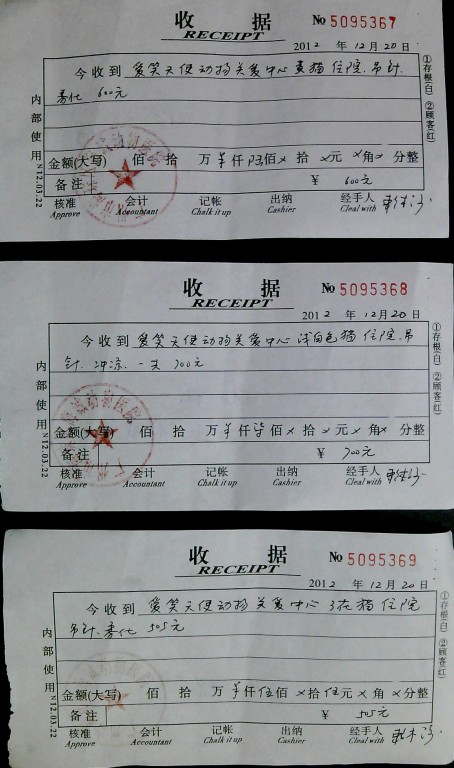 收 据 No 5095367
RECEIPT
2012 年 12 月 20 日
今收到 爱笑天使动物关爱中心 黄猫 住院.吊针.
600元
金额(大写) 佰 拾 万 仟 陆佰 × 拾 × 元 × 角 × 分整
备注 ¥ 600元
核准 会计 记帐 出纳 经手人
Approve Accountant Chalk it up Cashier Cleal with
内部使用 N12.03.22
①存根(白) ②顾客(红)
收 据 No 5095368
RECEIPT
2012 年 12 月 20 日
今收到 爱笑天使动物关爱中心 浅白色猫 住院.吊
针. 冲凉. 一天 700元
金额(大写) 佰 拾 万 仟 柒佰 × 拾 × 元 × 角 × 分整
备注 ¥ 700元
核准 会计 记帐 出纳 经手人
Approve Accountant Chalk it up Cashier Cleal with
内部使用 N12.03.22
①存根(白) ②顾客(红)
收 据 No 5095369
RECEIPT
2012 年 12 月 20 日
今收到 爱笑天使动物关爱中心 3花猫 住院
吊针. 505元
金额(大写) 佰 拾 万 仟 伍佰 × 拾 伍元 × 角 × 分整
备注 ¥ 505元
核准 会计 记帐 出纳 经手人
Approve Accountant Chalk it up Cashier Cleal with
内部使用 N12.03.22
①存根(白) ②顾客(红)